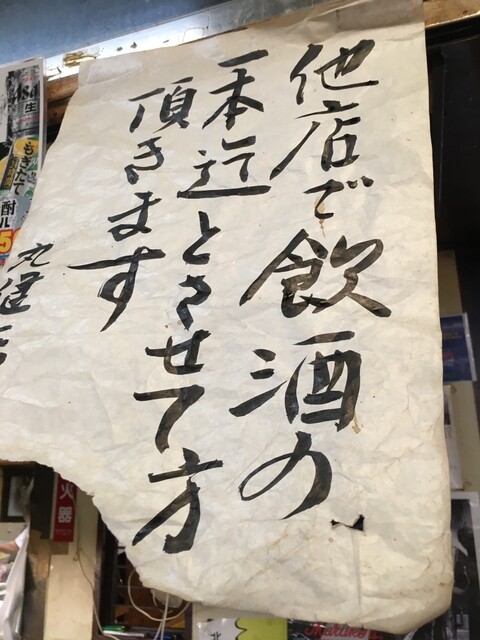 他店で飲酒の
方
一本迄とさせて
頂きます
丸健
生
もぎたて
酎
火器